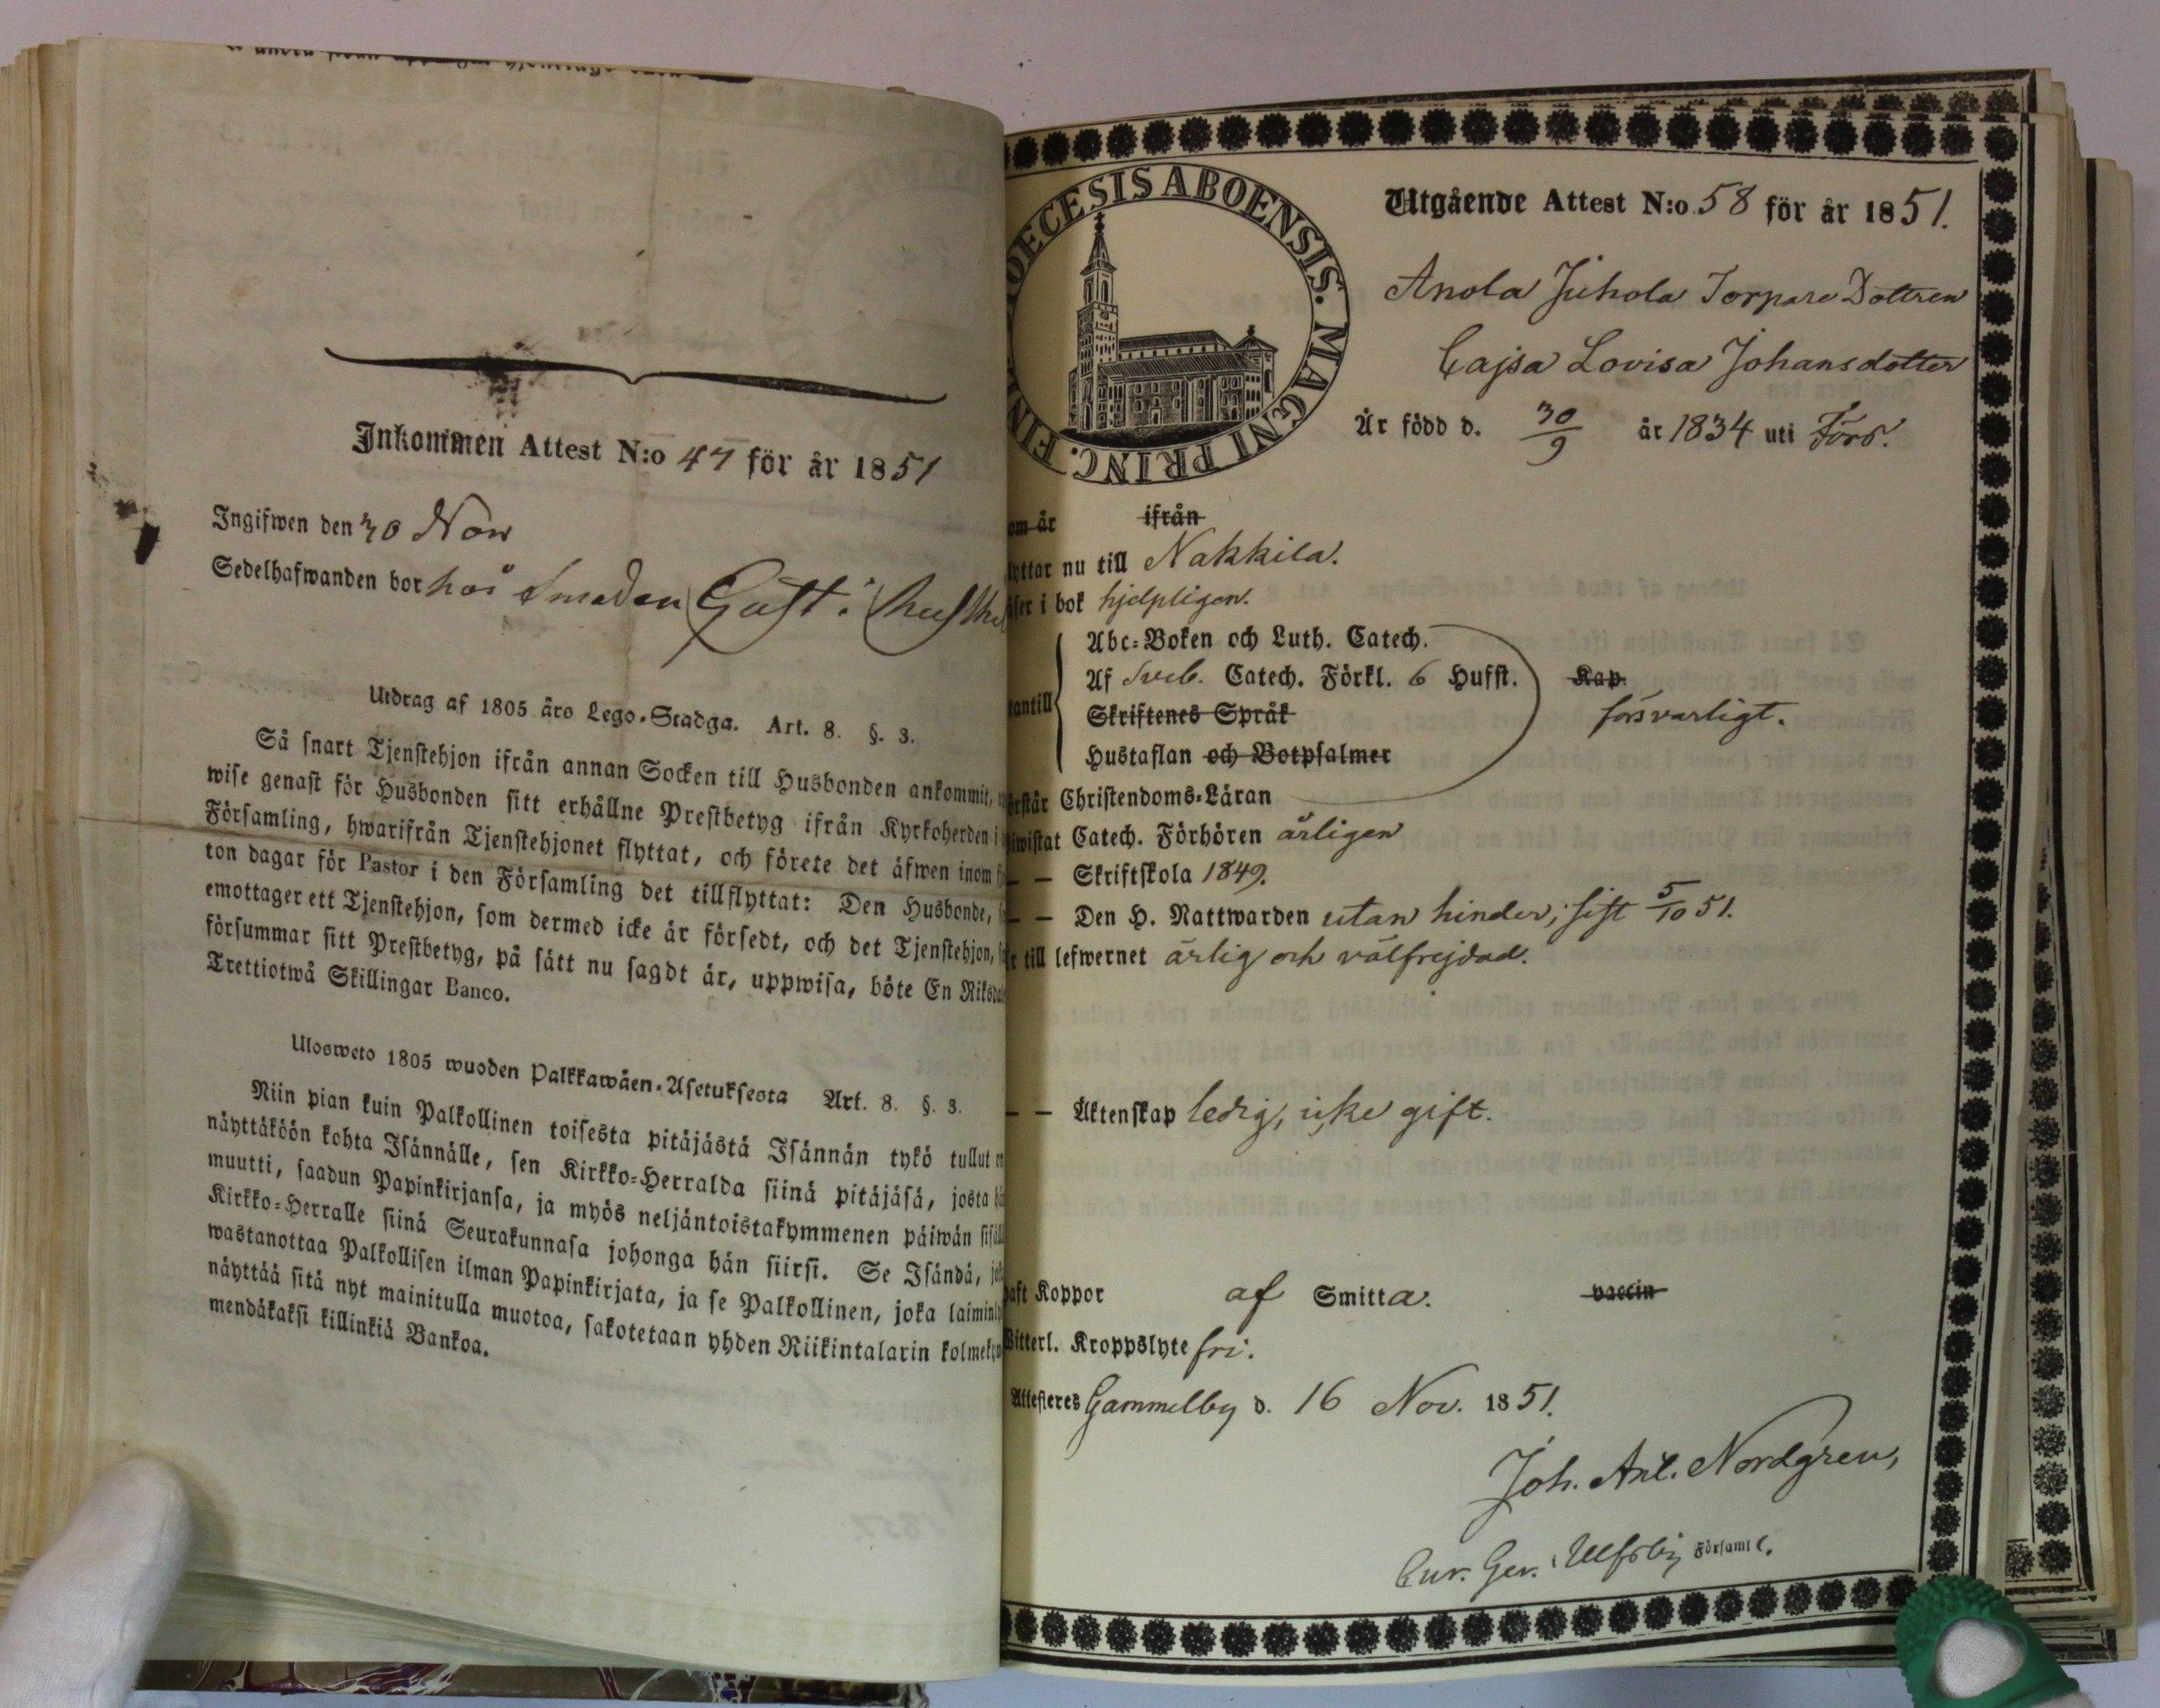 Inkommen Attest N:o 47 för år 1851
Ingifwen den 30 Nov
Sedelhafwanden bor hos Smeden Gast i
Utdrag af 1805 års Lego-Stadga. Art. 8. §. 3.
Så snart Tjenstehjon ifrån annan Socken till Husbonden ankommit,
wise genast för Husbonden sitt erhållne Prestbetyg ifrån Kyrkoherden i
Församling, hwarifrån Tjenstehjonet flyttat, och förete det äfwen inom
ton dagar för Pastor i den Församling det tillflyttat: Den Husbonde,
emottager ett Tjenstehjon, som dermed icke är försedt, och det Tjenstehjon,
försummar sitt Prestbetyg, på sätt nu sagdt är, uppwisa, böte En Riksda
Trettiotwå Skillingar Banco.
Ulosweto 1805 wuoden Palkkawäen-Asetuksesta Art. 8. §. 3.
Niin pian kuin Palkollinen toisesta pitäjästä Isännän tykö tullut on
näyttäköön kohta Isännälle, sen Kirkko-Herralda siinä pitäjäsä, josta hä
muutti, saadun Papinkirjansa, ja myös neljäntoistakymmenen päiwän sisäll
Kirkko-Herralle siinä Seurakunnasa johonga hän siirsi. Se Isändä, jok
wastanottaa Palkollisen ilman Papinkirjata, ja se Palkollinen, joka laiminly
näyttää sitä nyt mainitulla muotoa, sakotetaan yhden Riikintalarin kolmeky
mendäkaksi killinkiä Bankoa.
OECESIS ABOENSIS. MAGNI PRINC. FIN
Utgående Attest N:o 58 för år 1851.
Anola Juhola Torpare Dottren
Cajsa Lovisa Johansdotter
Är född d. 30/9 år 1834 uti Förs.
om är ifrån
lyttar nu till Nakkila.
äser i bok hjelpligen.
Abc-Boken och Luth. Catech.
Af Sveb. Catech. Förkl. 6 Hufst. Kap.
tantill
Skriftenes Språk försvarligt.
Hustaflan och Botpsalmer
örstår Christendoms-Läran
iwistat Catech. Förhören årligen
— — Skriftskola 1849.
— — Den H. Nattwarden utan hinder; sist 5/10 51.
r till lefwernet ärlig och välfrejdad.
— — Äktenskap ledig, icke gift.
haft Koppor af Smitta. vaccin
Witterl. Kroppslyte fri.
Attesteres Gammelby d. 16 Nov. 1851.
Joh. Ant. Nordgren,
Cur. Ger. i Ulfsby Församl.